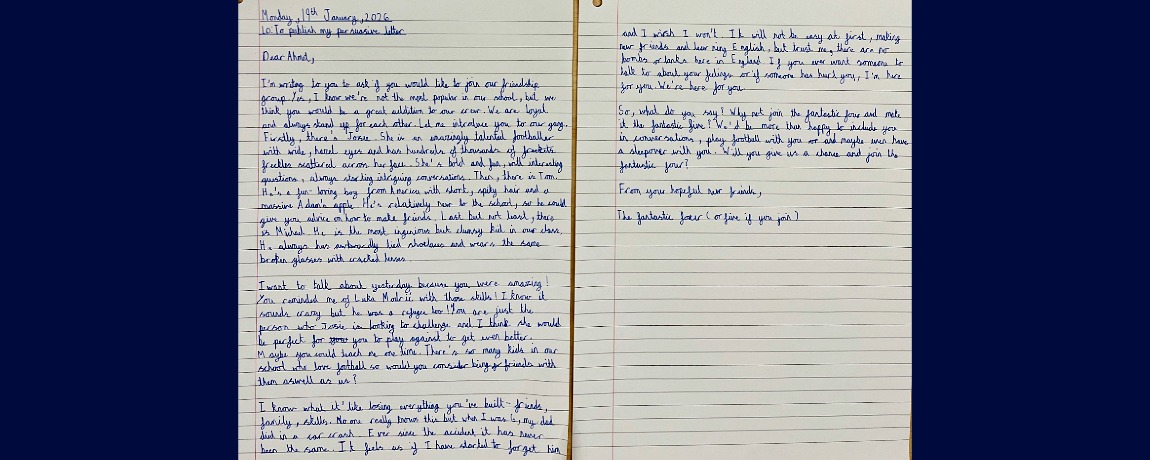 Monday, 19th January, 2026
LO: To publish my persuasive letter
Dear Ahmet,
I'm writing to you to ask if you would like to join our friendship
group. Yes, I know we're not the most popular in our school, but we
think you would be a great addition to our crew. We are loyal
and always stand up for each other. Let me introduce you to our gang.
Firstly, there's Josie. She is an amazingly talented footballer
with wide, hazel eyes and has hundreds of thousands of
freckles scattered across her face. She's bold and fun, with interesting
questions, always starting intriguing conversations. Then, there is Tom.
He's a fun-loving boy from America with short, spiky hair and a
massive Adam's apple. He's relatively new to the school, so he could
give you advice on how to make friends. Last but not least, there
is Michael. He is the most ingenious but clumsy kid in our class.
He always has awkwardly tied shoelaces and wears the same
broken glasses with cracked lenses.
I want to talk about yesterday because you were amazing!
You reminded me of Luka Modrić with those skills! I know it
sounds crazy but he was a refugee too! You are just the
person who Josie is looking to challenge and I think she would
be perfect for you you to play against to get even better.
Maybe you could teach me one time. There's so many kids in our
school who love football so would you consider being friends with
them aswell as us?
I know what it's like losing everything you've built- friends,
family, skills. No one really knows this but when I was 6, my dad
died in a car crash. Ever since the accident it has never
been the same. It feels as if I have started to forget him
and I wish I won't. It will not be easy at first, making
new friends and learning English, but trust me, there are no
bombs or tanks here in England. If you ever want someone to
talk to about your feelings or if someone has hurt you, I'm here
for you. We're here for you.
So, what do you say? Why not join the fantastic four and make
it the fantastic five? We'd be more than happy to include you
in conversations, play football with you or and maybe even have
a sleepover with you. Will you give us a chance and join the
fantastic four?
From your hopeful new friends,
The fantastic four (or five if you join)